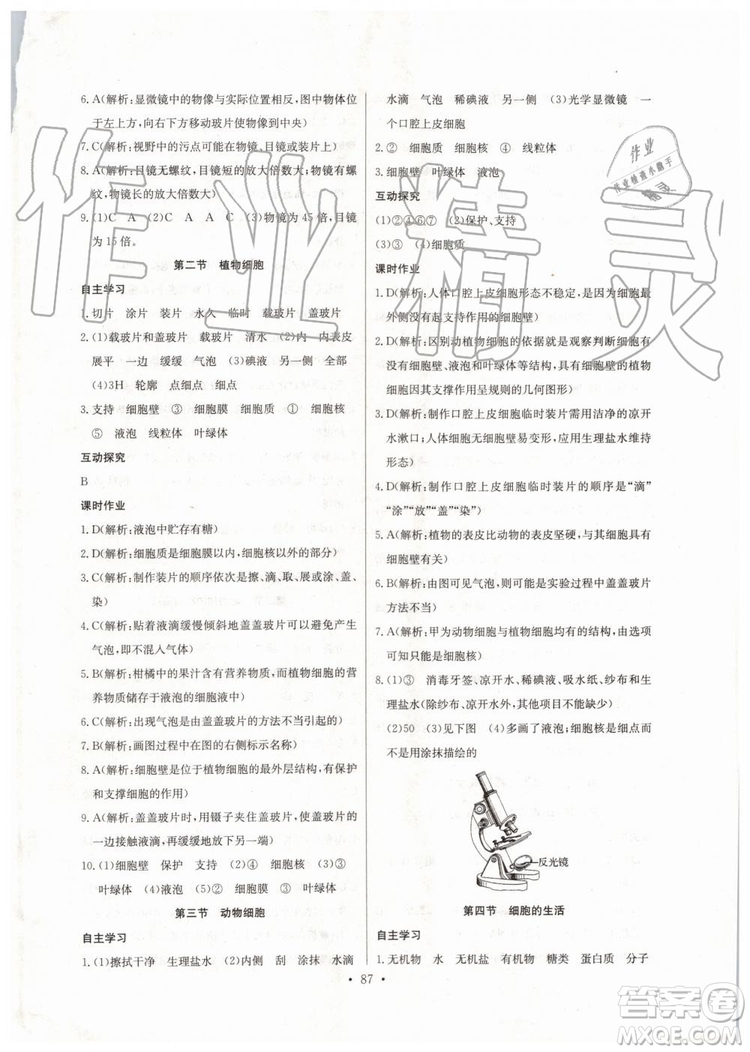 6. A(解析:显微镜中的物像与实际位置相反,图中物体位
于左上方,向右下方移动玻片使物像到中央)
7. C(解析:视野中的污点可能在物镜、目镜或装片上)
8. A(解析:目镜无螺纹,目镜短的放大倍数大;物镜有螺
纹,物镜长的放大倍数大)
9. (1)C A A C (2)10倍 (3)物镜为45倍,目镜
为15倍。
第二节 植物细胞
自主学习
1. 切片 涂片 装片 永久 临时 载玻片 盖玻片
2. (1)载玻片和盖玻片 载玻片 清水 (2)内 内表皮
展平 一边 缓缓 气泡 (3)碘液 另一侧 全部
(4)3H 轮廓 点细点 细点
3. 支持 细胞壁 ③ 细胞膜 细胞质 ① 细胞核
⑤ 液泡 线粒体 叶绿体
互动探究
B
课时作业
1. D(解析:液泡中贮存有糖)
2. D(解析:细胞质是细胞膜以内、细胞核以外的部分)
3. C(解析:制作装片的顺序依次是擦、滴、取、展或涂、盖、
染)
4. C(解析:贴着液滴缓慢倾斜地盖盖玻片可以避免产生
气泡,即不混入气体)
5. D(解析:柑橘中的果汁含有营养物质,而植物细胞的营
养物质储存于液泡的细胞液中)
6. C(解析:出现气泡是由盖盖玻片的方法不当引起的)
7. B(解析:画图过程中在图的右侧标示名称)
8. A(解析:细胞壁是位于植物细胞最外层的结构,有保护
和支撑细胞的作用)
9. A(解析:盖盖玻片时,用镊子夹住盖玻片,使盖玻片的
一边接触液滴,再缓缓地放下另一端)
10. (1)细胞壁 保护 支持 (2)④ 细胞核 (3)③
叶绿体 (4)液泡 (5)② 细胞膜 (6)③ 叶绿体
第三节 动物细胞
自主学习
1. (1)擦拭干净 生理盐水 (2)内侧 刮 涂抹 水滴
水滴 气泡 稀碘液 另一侧 (3)光学显微镜 一
个口腔上皮细胞
2. ② 细胞膜 细胞质 ① 细胞核 ④ 线粒体
3. 细胞壁 叶绿体 液泡
互动探究
(1)①②④⑥⑦ (2)保护、支持
(3)③ (4)细胞质
课时作业
1. D(解析:人体口腔上皮细胞形态不稳定,是因为细胞最
外侧没有起支持作用的细胞壁)
2. D(解析:区别动植物细胞的依据就是观察判断细胞有
无细胞壁、液泡和叶绿体等结构,具有细胞壁的植物细
胞因其支撑作用呈规则的几何图形)
3. D(解析:制作口腔上皮细胞临时装片需用洁净的凉开
水漱口;人体细胞无细胞壁易变形,应用生理盐水维持
形态)
4. D(解析:制作口腔上皮细胞临时装片的顺序是“滴”
“涂”“放”“盖”“染”)
5. A(解析:植物的表皮比动物的表皮坚硬,与其具有细胞
壁有关)
6. D(解析:由图可见气泡,可能是实验过程中盖盖玻片
方法不当)
7. A(解析:甲为动物细胞与植物细胞均有的结构,由选项
可知只能是细胞核)
8. (1)③ 消毒牙签、凉开水、稀碘液、吸水纸、纱布和生
理盐水(除纱布、凉开水外,其他不能缺少)
(2)50 (3)见下图 (4)多画了液泡;细胞核是细点而
不是用涂抹描绘的
反光镜
第四节 细胞的生活
自主学习
1. 无机物 水 无机盐 有机物 糖类 蛋白质 分子
· 87 ·
作业精灵
作业
作业检查小助手
精灵
答案圈
MXQE.COM